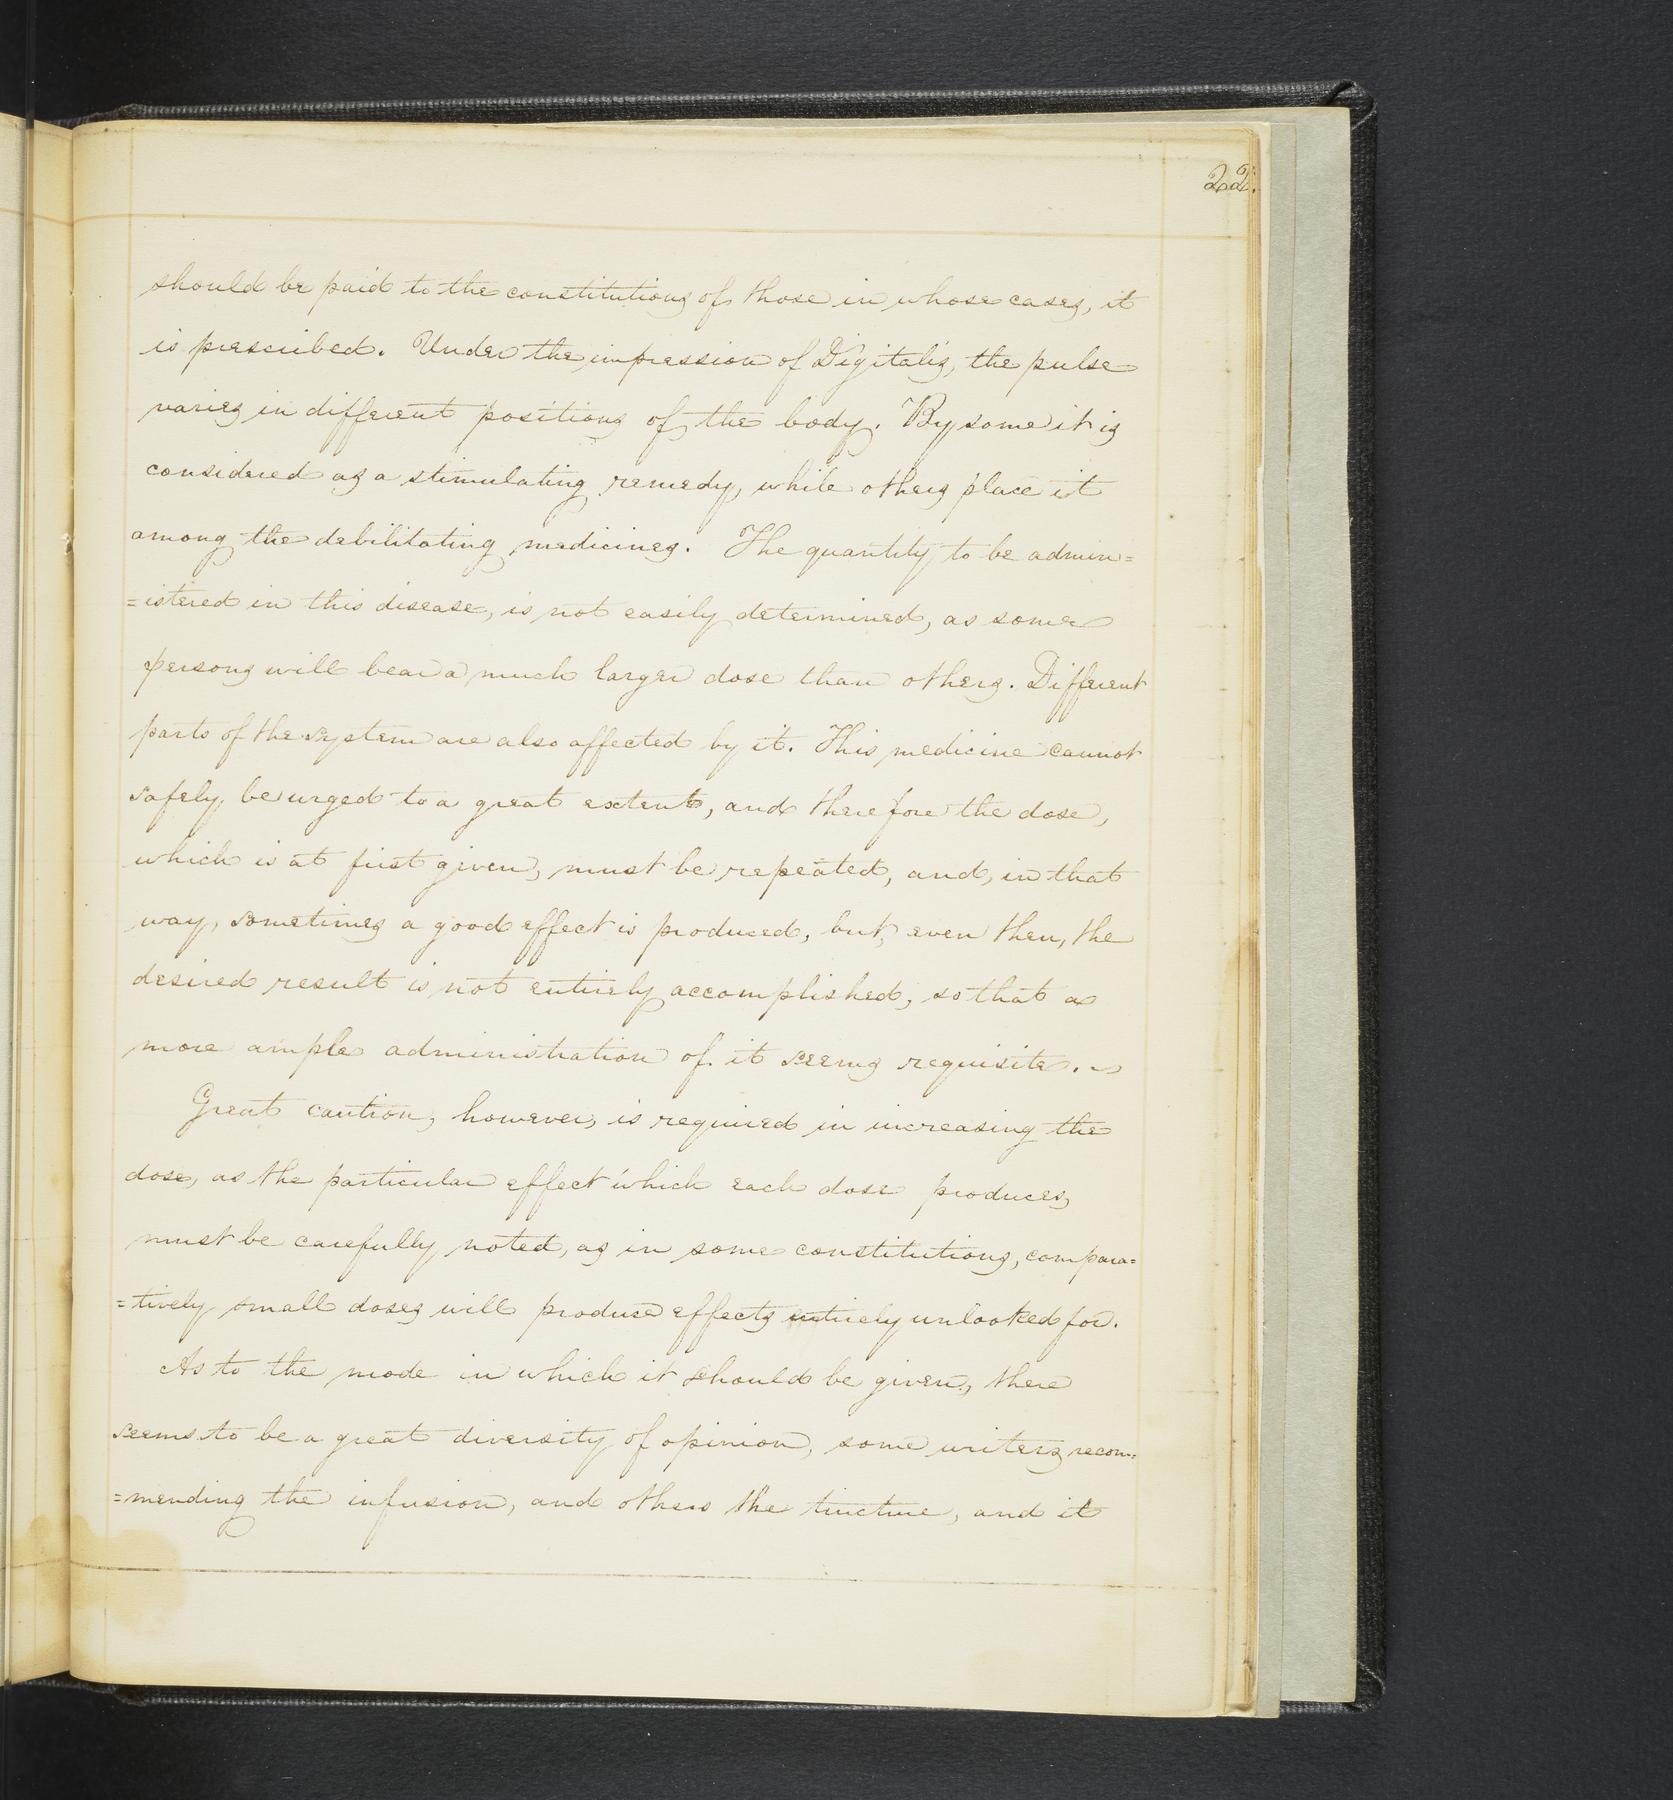 22.
should be paid to the constitutions of those in whose cases, it
is prescribed. Under the impression of Digitalis, the pulse
varies in different positions of the body. By some it is
considered as a stimulating remedy, while others place it
among the debilitating medicines. The quantity to be admin=
=istered in this disease, is not easily determined, as some
persons will bear a much larger dose than others. Different
parts of the system are also affected by it. This medicine cannot
safely be urged to a great extent, and therefore the dose,
which is at first given, must be repeated, and, in that
way, sometimes a good effect is produced, but, even then, the
desired result is not entirely accomplished, so that a
more ample administration of it seems requisite. ~
Great caution, however, is required in increasing the
dose, as the particular effect which each dose produces,
must be carefully noted, as in some constitutions, compara=
=tively small doses will produce effects entirely unlooked for.
As to the mode in which it should be given, there
seems to be a great diversity of opinion, some writers recom=
=mending the infusion, and others the tincture, and it